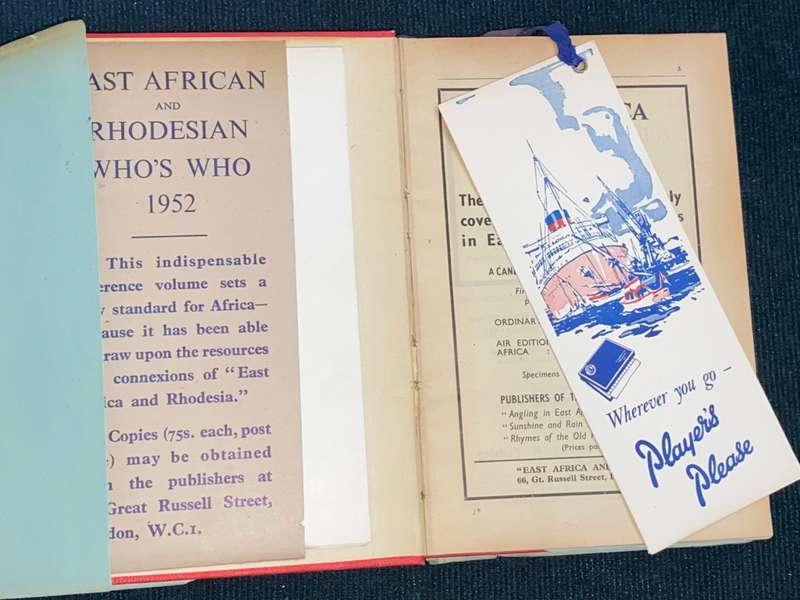 AST AFRICAN
AND
RHODESIAN
WHO'S WHO
1952
This indispensable
erence volume sets a
y standard for Africa—
ause it has been able
raw upon the resources
connexions of "East
ica and Rhodesia."
Copies (75s. each, post
) may be obtained
n the publishers at
Great Russell Street,
don, W.C.1.
The
ly
cove
s
in Ea
A CAN
ORDINAR
AIR EDITION
AFRICA :
Specimens
PUBLISHERS OF T
"Angling in East A
"Sunshine and Rain
"Rhymes of the Old
(Prices pos
"EAST AFRICA AN
66, Gt. Russell Street,
Wherever you go –
Player's
Please